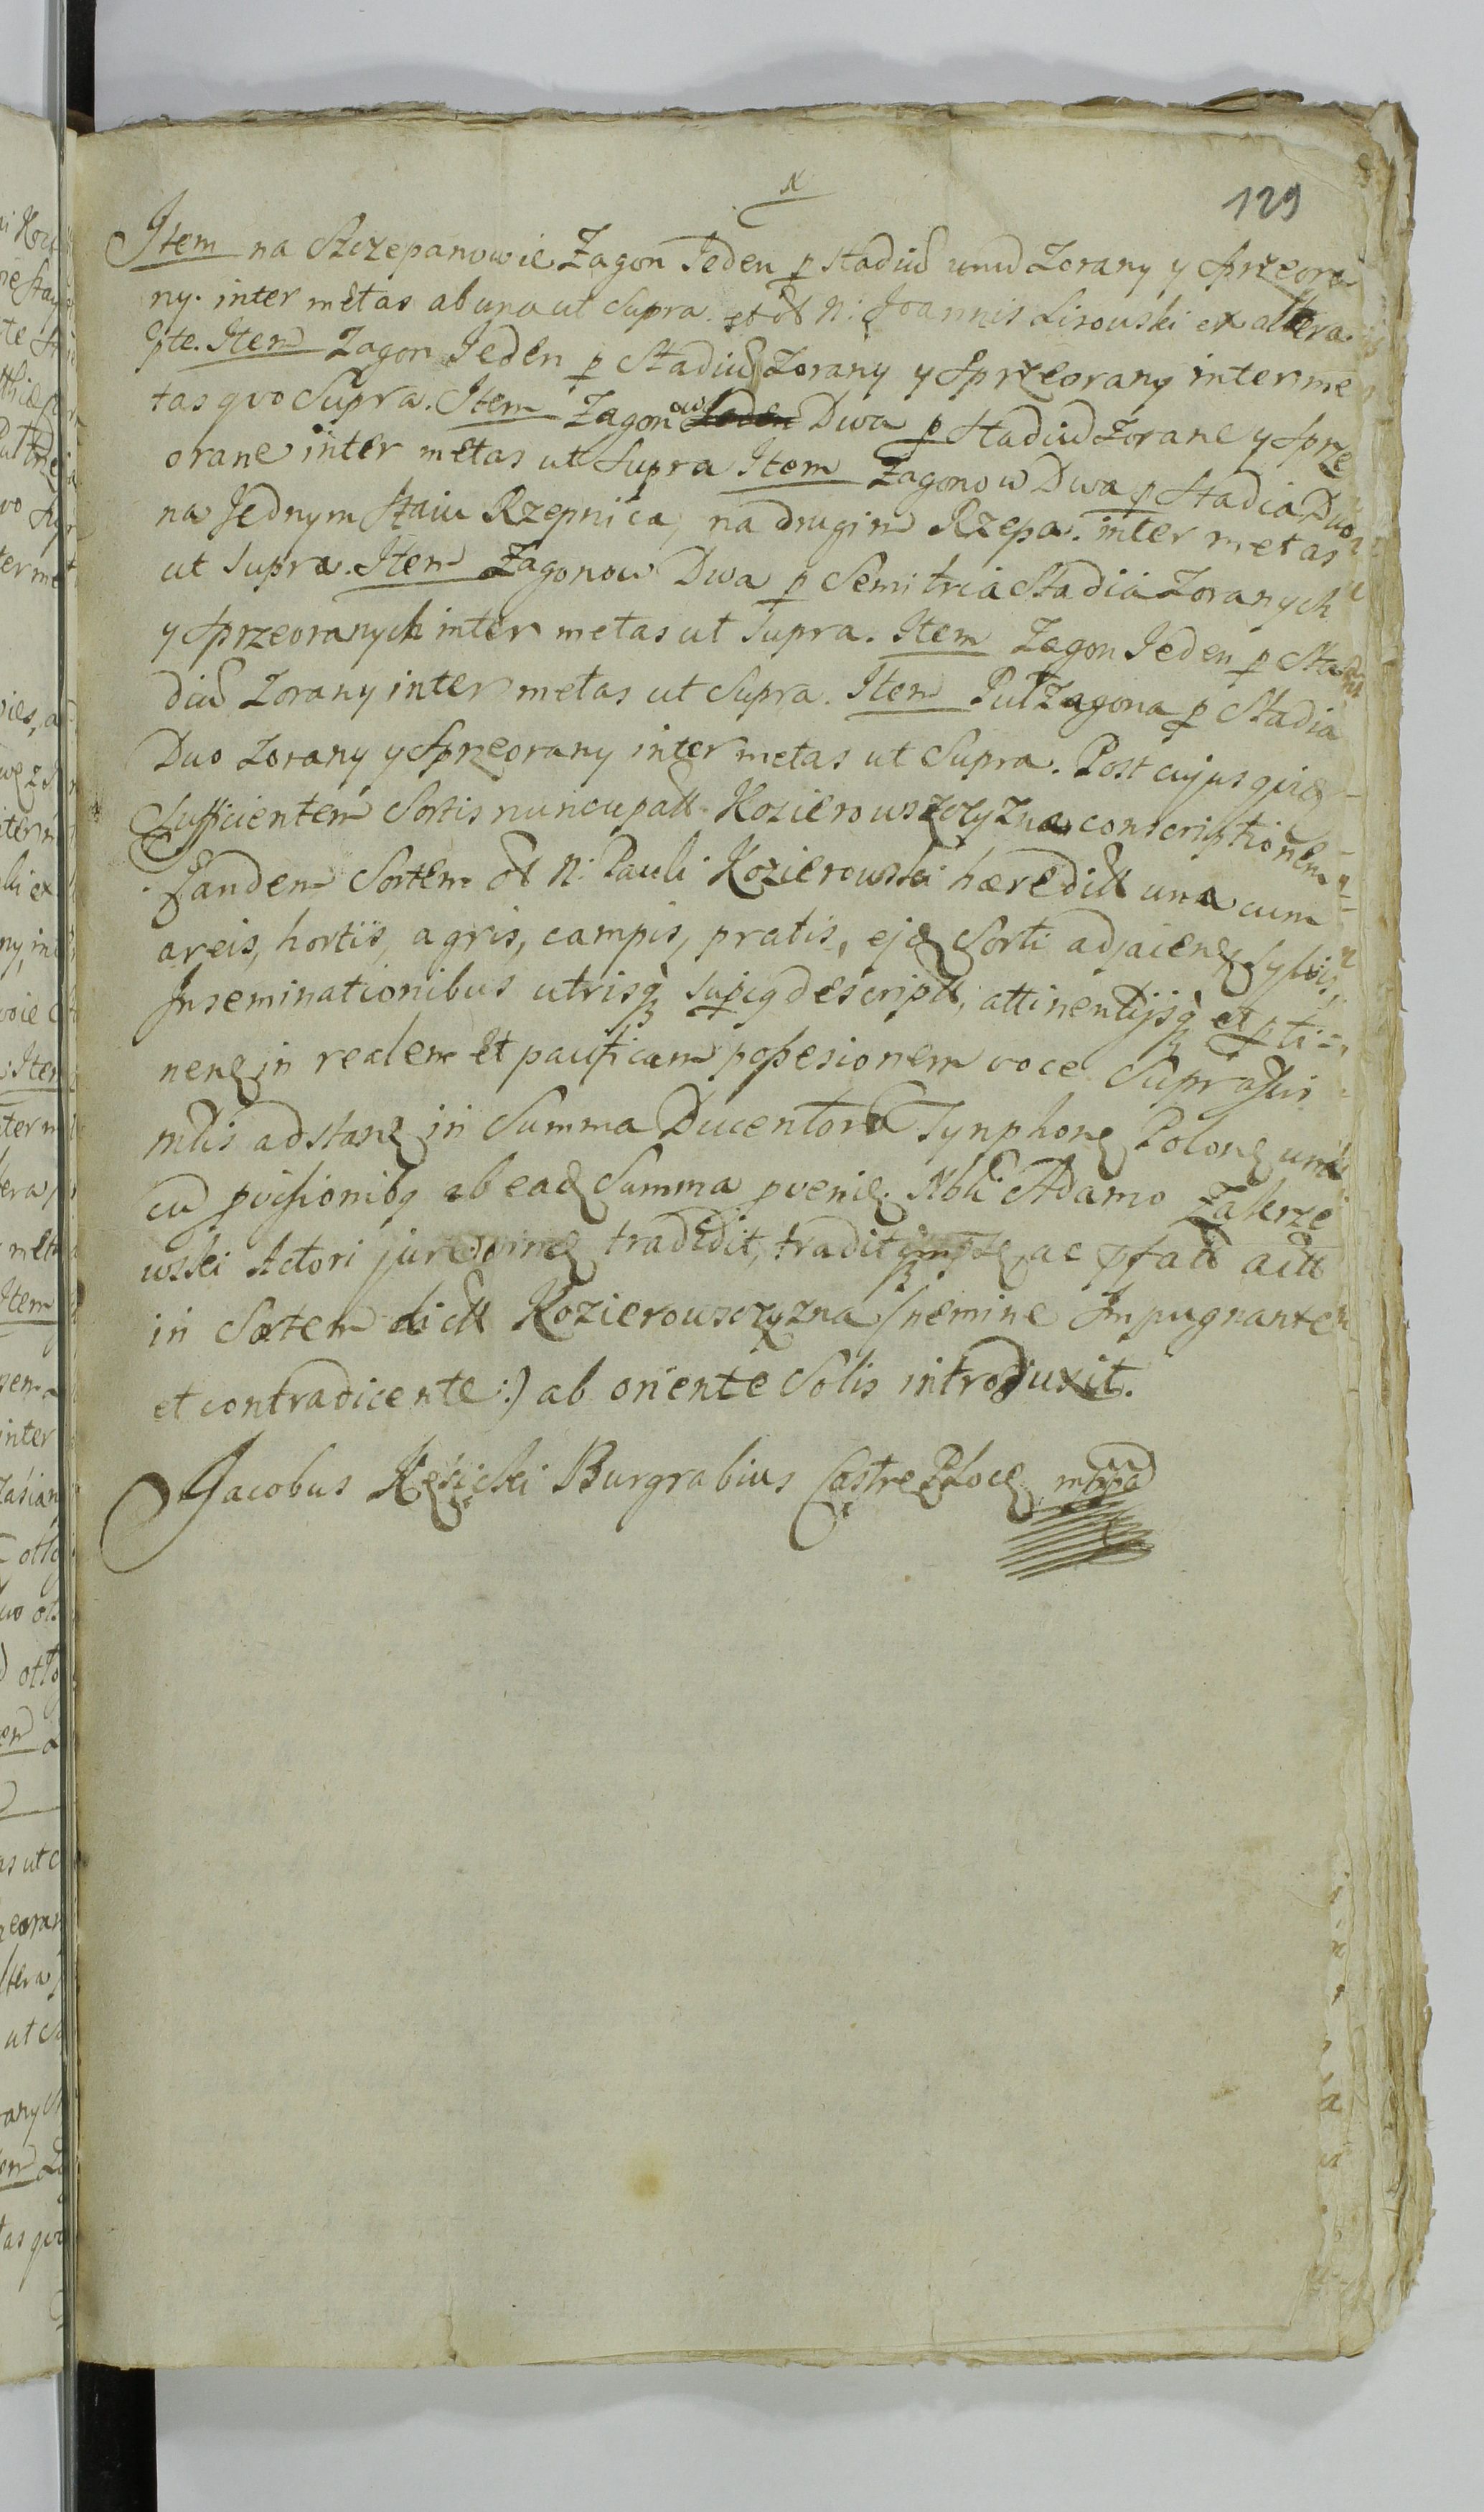 N
129
Item na Szczepanowie Zagon Jeden p Stadiu unu Zorany y Sprzeora
ny. inter metas ab una ut Supra. et N: Joannis Lisowski ex altera
pte. Item Zagon Jeden p Stadiu Zorany y Sprzeorany inter me
tas quo Supra. Item Zagonow Jeden Dwa p Stadiu Zorane y Sprze
orane inter metas ut Supra Item Zagonow Dwa p Stadia Duo
na Jednym Staiu Rzepnica, na drugim Rzepa. inter metas
ut Supra. Item Zagonow Dwa p Semi tria Stadia Zoranych
y Sprzeoranych inter metas ut Supra. Item Zagon Jeden p Sta
diu Zorany inter metas ut Supra. Item Puł Zagona p Stadia
Duo Zorany y Sprzeorany inter metas ut Supra. Post cujus quid
Sufficientem Sortis nuncupatt Kozierowszczyzna conscriptionem
Eandem Sortem N: Pauli Kozierowski hæreditt una cum
areis, hortis, agris, campis, pratis, ejq Sorti adjacen Sylvis,
Inseminationibus utrisq supiq descriptt, attinentijsq et pti=
nen in realem et pacificam possesionem voce Supra
mlis adstan in Summa Ducentoru Tynphon Polon una
cu pvisionibq ab ead Summa pvenien. Nbli Adamo Zakrze
wski Actori tradidit, ac pfatt actt
in Sortem dictt Kozierowszczyzna (nemine Impugnante
et contradicente:) ab oriente Solis introduxit.
Jacobus Kęsicki Burgrabius Castren Ploc mppa